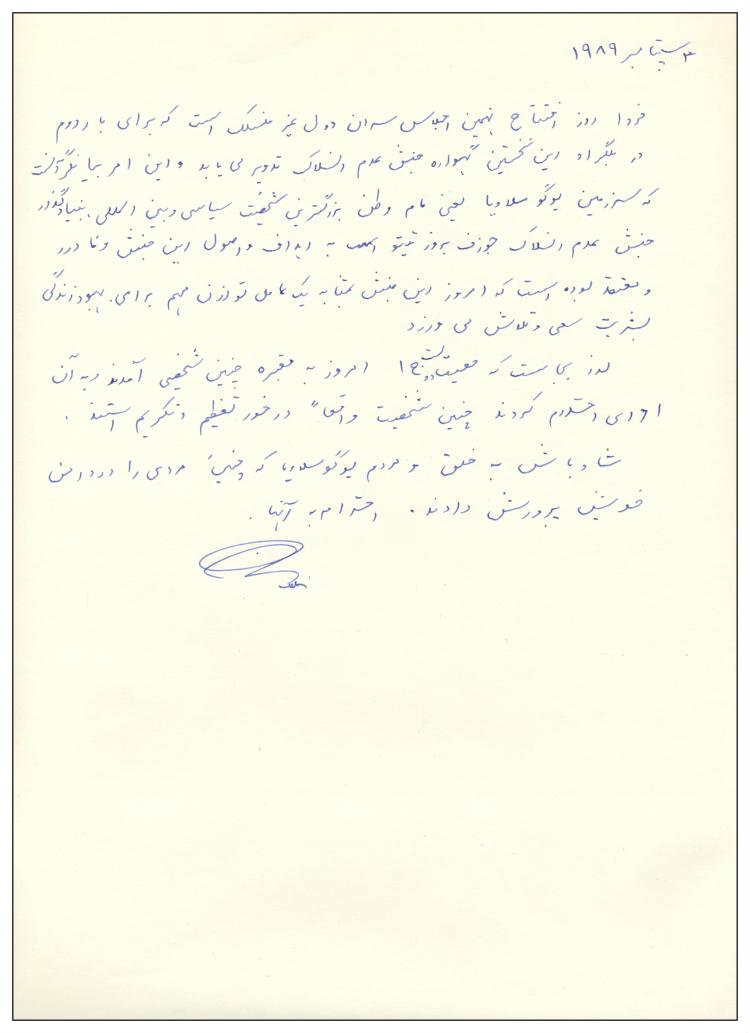 ۳ سپتامبر ۱۹۸۹
فردا روز افتتاح نهمین اجلاس سران دول غیر منسلک است که برای بار دوم
در بلگراد این نخستین گهواره جنبش عدم انسلاک تدویر می یابد و این امر بیانگر آنست
که سرزمین یوگوسلاویا یعنی مام وطن بزرگترین شخصیت سیاسی و بین المللی بنیادگذار
جنبش عدم انسلاک جوزف بروز تیتو به اهداف و اصول این جنبش وفادار
و معتقد بوده است که امروز این جنبش بمثابه یک عامل توازن مهم برای بهبود زندگی
بشریت سعی و تلاش می ورزد
امروز به مقبره چنین شخصی آمدند و به آن
ادای احترام کردند چنین شخصیت واقعاً درخور تعظیم و تکریم استند .
شادباش به خلق و مردم یوگوسلاویا که چنین مردی را در دامن
خویش پرورش دادند . احترام به آنها .